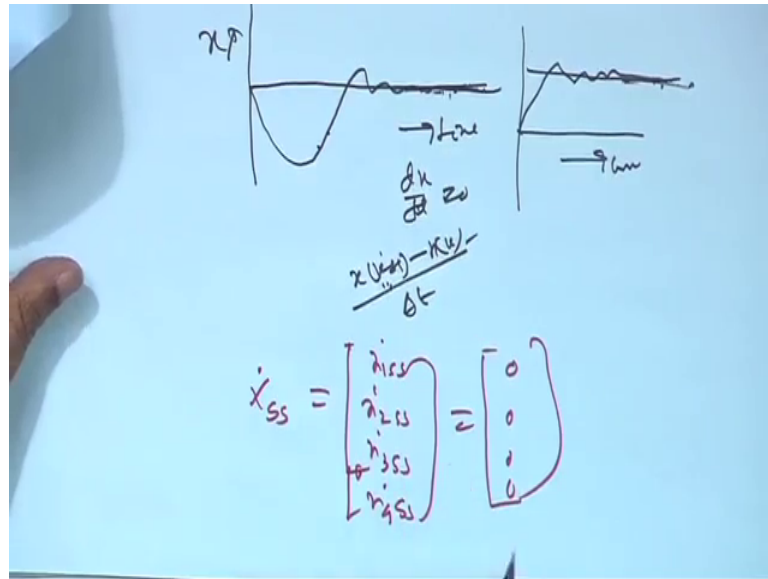 x↑
→ time
→ time
dx/dt = 0
x(i+1) − x(i) / Δt
Ẋss = [ẋ1ss ẋ2ss ẋ3ss ẋ4ss] = [0 0 0 0]